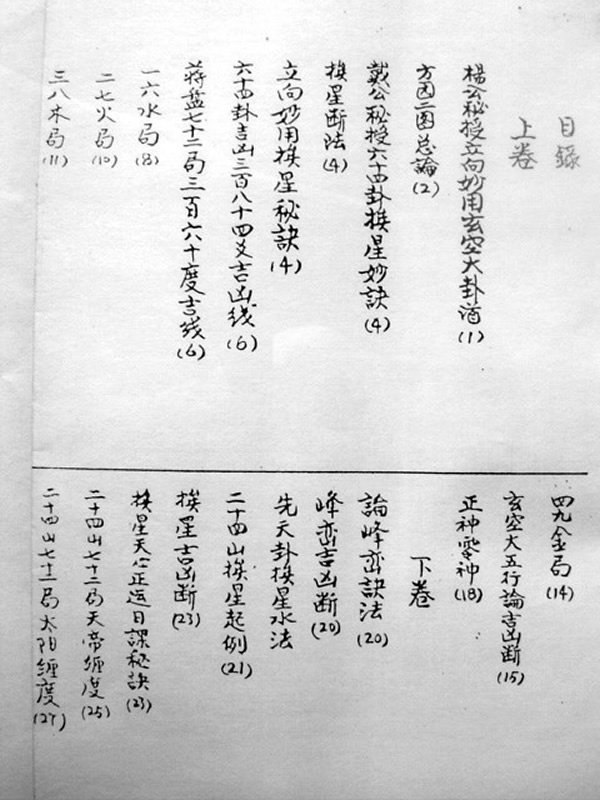 目錄
上卷
楊公秘授立向妙用玄空大卦酒(1)
方因二图总論(2)
戴公秘授六十四卦挨星妙訣(4)
挨星断法(4)
立向妙用挨星秘訣(4)
六十四卦吉凶三百八十四爻吉凶线(6)
蒋盘七十二局三百六十度吉线(6)
一六水局(8)
二七火局(10)
三八木局(11)
四九金局(14)
玄空大五行論吉凶断(15)
正神零神(18)
下卷
論峰峦訣法(20)
峰峦吉凶断(20)
先天卦挨星水法
二十四山挨星起例(21)
挨星吉凶断(23)
挨星天心正运日課秘訣(23)
二十四山七十二局天帝缠度(25)
二十四山七十二局太阳缠度(27)